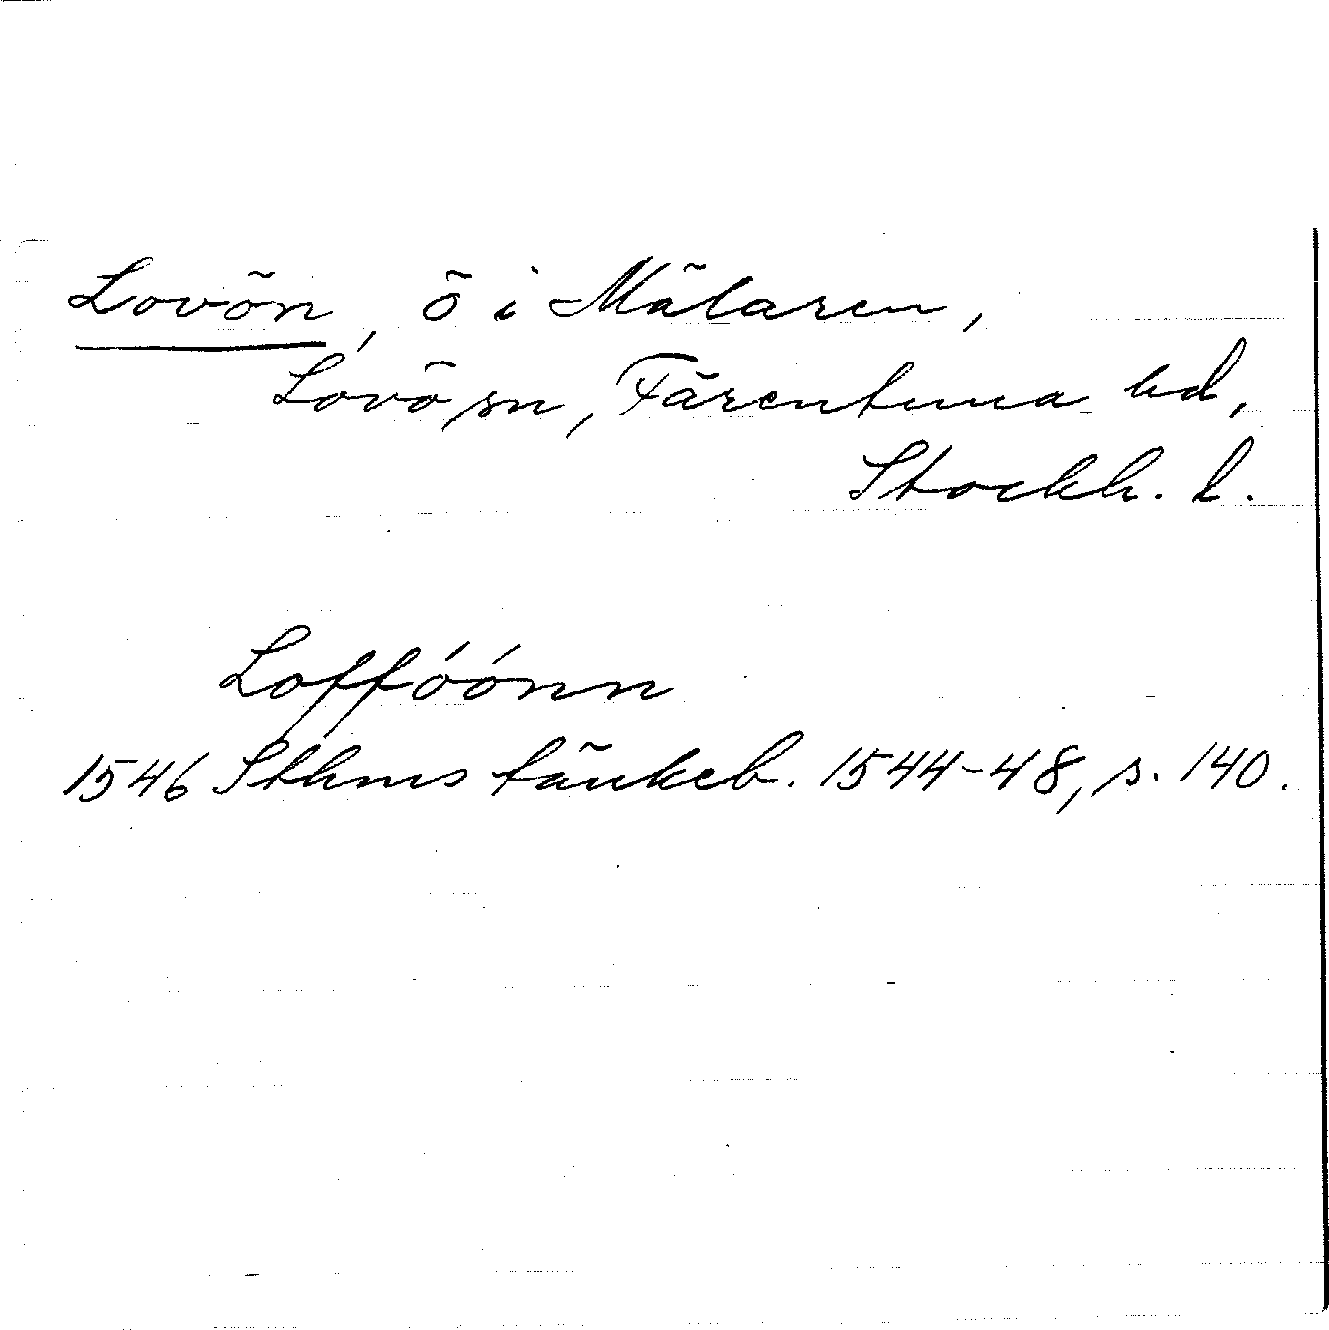 Lovön, ö i Mälaren,
Lovö sn, Färentuna hd,
Stockh. l.
Loffóónn
1546 Sthms tänkeb. 1544-48, s. 140.